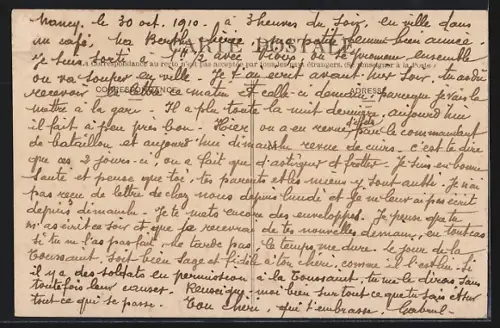 Nancy, le 30 oct. 1910. à 3 heures du soir, en ville dans
un café, ma Berthe chérie, ma petite femme bien aimée.
CARTE POSTALE
Je suis sorti à 1 h 1/2 avec où se promener ensemble
La Correspondance au recto n'est pas acceptée par tous les pays étrangers (Se renseigner à la Poste)
on va souper en ville. Je t'ai écrit avant hier soir. Tu as dû
CORRESPONDANCE
ADRESSE
recevoir la lettre ce matin et celle-ci demain, parce que je vais la
mettre à la gare. Il a plu toute la nuit dernière, aujourd'hui
il fait à peu près bon. Hier, on a eu revue par le commandant
de bataillon et aujourd'hui dimanche revue de cuirs. c'est te dire
que ces 2 jours-ci, on a fait que d'astiquer et frotter. Je suis en bonne
santé et pense que toi, tes parents et les miens y sont aussi. Je n'ai
pas reçu de lettre de chez nous depuis lundi et je ne leur ai pas écrit
depuis dimanche. Je te mets encore des enveloppes. Je pense que tu
m'as écrit ce soir et que je recevrai de tes nouvelles demain, en tout cas
si tu ne l'as pas fait, ne tarde pas, le temps me dure. le jour de la
Toussaint, soit bien sage et fidèle à ton chéri, comme il l'est lui. Si
il y a des soldats en permission à la Toussaint, tu me le diras sans
toutefois leur causer. Renseigne-moi bien sur tout ce que tu sais et sur
tout ce qui se passe. Ton chéri, qui t'embrasse. Gabriel